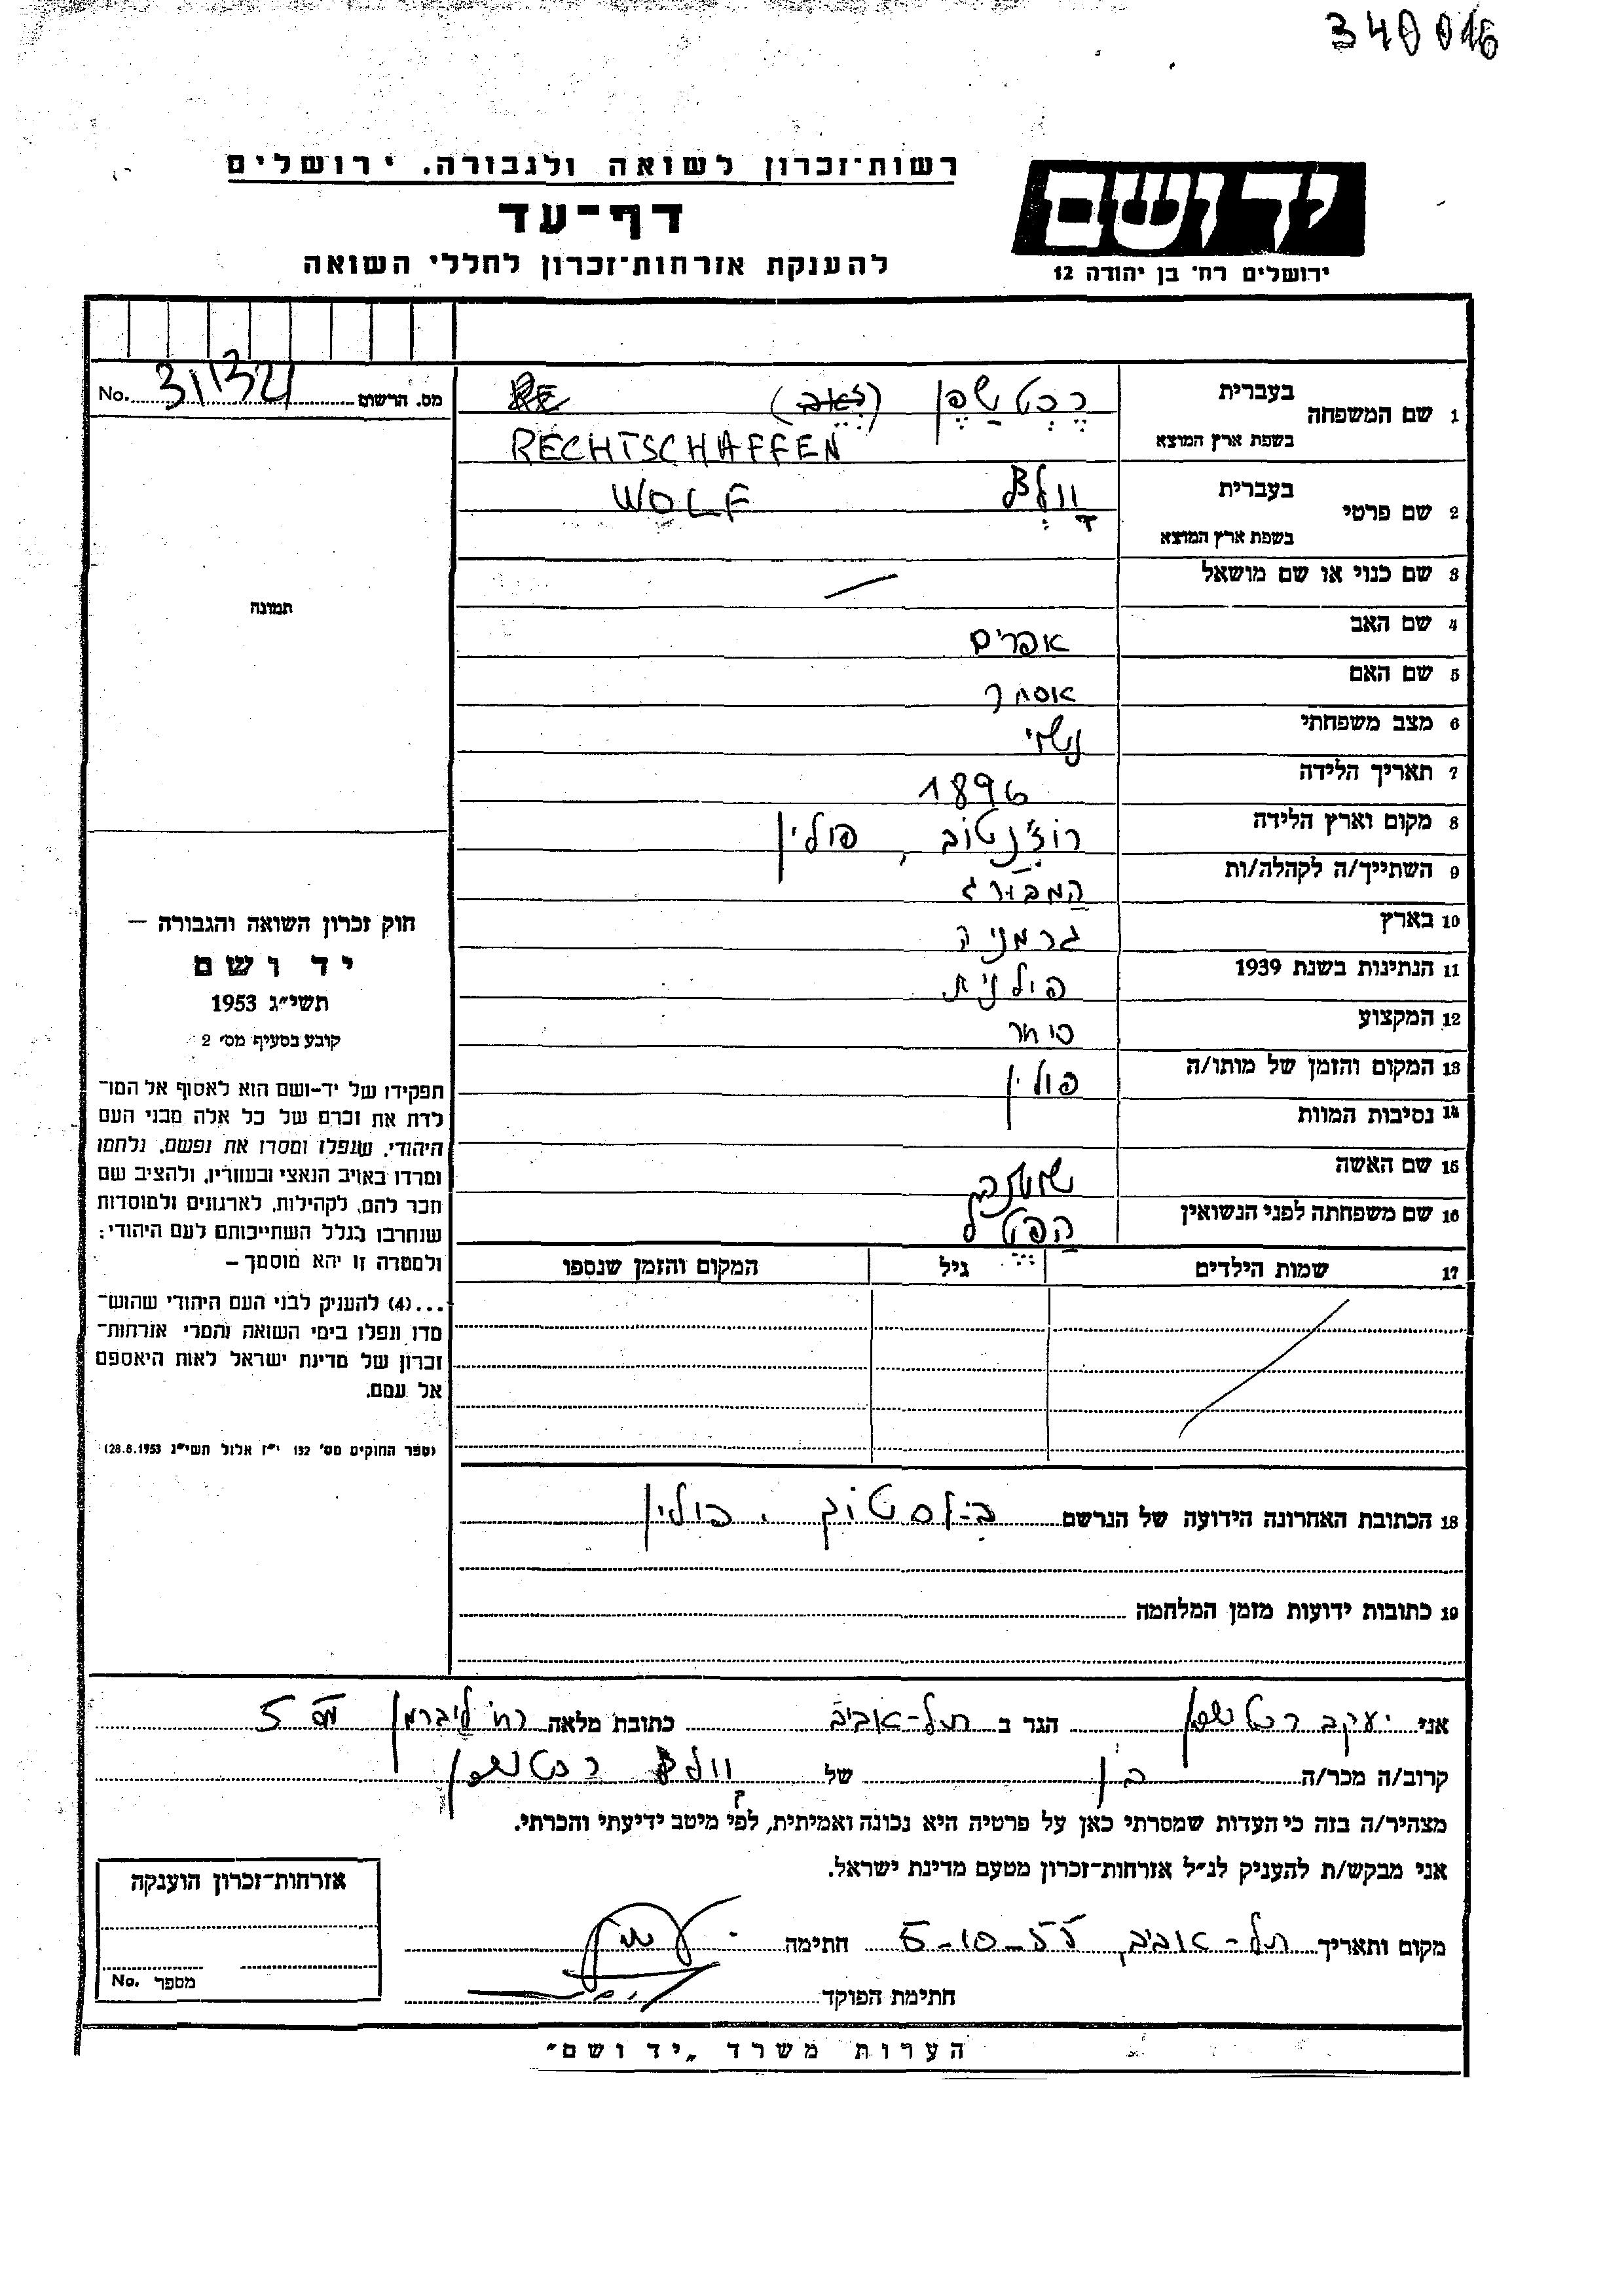 340016
רשות־זכרון לשואה ולגבורה. ירושלים
יד ושם
דף־עד
להענקת אזרחות־זכרון לחללי השואה
ירושלים רח' בן יהודה 12
מס. הרשום 31132 No.
1 שם המשפחה בעברית רֶכְטשַפֶן (זאב) RE
בשפת ארץ המוצא RECHTSCHAFFEN
2 שם פרטי בעברית WOLF
בשפת ארץ המוצא
3 שם כנוי או שם מושאל
תמונה
4 שם האב אפרים
5 שם האם אסתר
6 מצב משפחתי נשוי
7 תאריך הלידה 1896
8 מקום וארץ הלידה רוז'נטוב, פולין
9 השתייך/ה לקהלה/ות המבורג
10 בארץ גרמניה
11 הנתינות בשנת 1939 פולנית
12 המקצוע סוחר
13 המקום והזמן של מותו/ה פולין
14 נסיבות המוות
15 שם האשה
16 שם משפחתה לפני הנשואין
17 שמות הילדים גיל המקום והזמן שנספו
חוק זכרון השואה והגבורה —
יד ושם
תשי״ג 1953
קובע בסעיף מס' 2
תפקידו של יד-ושם הוא לאסוף אל המו־
לדת את זכרם של כל אלה מבני העם
היהודי, שנפלו ומסרו את נפשם, נלחמו
ומרדו באויב הנאצי ובעוזריו, ולהציב שם
וזכר להם, לקהילות, לארגונים ולמוסדות
שנחרבו בגלל השתייכותם לעם היהודי:
ולמטרה זו יהא מוסמך –
...(4) להעניק לבני העם היהודי שהוש־
מדו ונפלו בימי השואה והמרי אזרחות־
זכרון של מדינת ישראל לאות היאספם
אל עמם.
(ספר החוקים מס' 132 י״ז אלול תשי״ג 28.8.1953)
18 הכתובת האחרונה הידועה של הנרשם ביאלסטוק, פולין
19 כתובות ידועות מזמן המלחמה
אני יעקב רכטשפן הגר ב תל-אביב כתובת מלאה רח' ליברמן מס 5
קרוב/ה מכר/ה בן של רכטשפן
מצהיר/ה בזה כי העדות שמסרתי כאן על פרטיה היא נכונה ואמיתית, לפי מיטב ידיעתי והכרתי.
אני מבקש/ת להעניק לנ״ל אזרחות־זכרון מטעם מדינת ישראל.
אזרחות־זכרון הוענקה
מקום ותאריך תל-אביב 5-10-55 חתימה
מספר No.
חתימת הפוקד
הערות משרד „יד ושם״